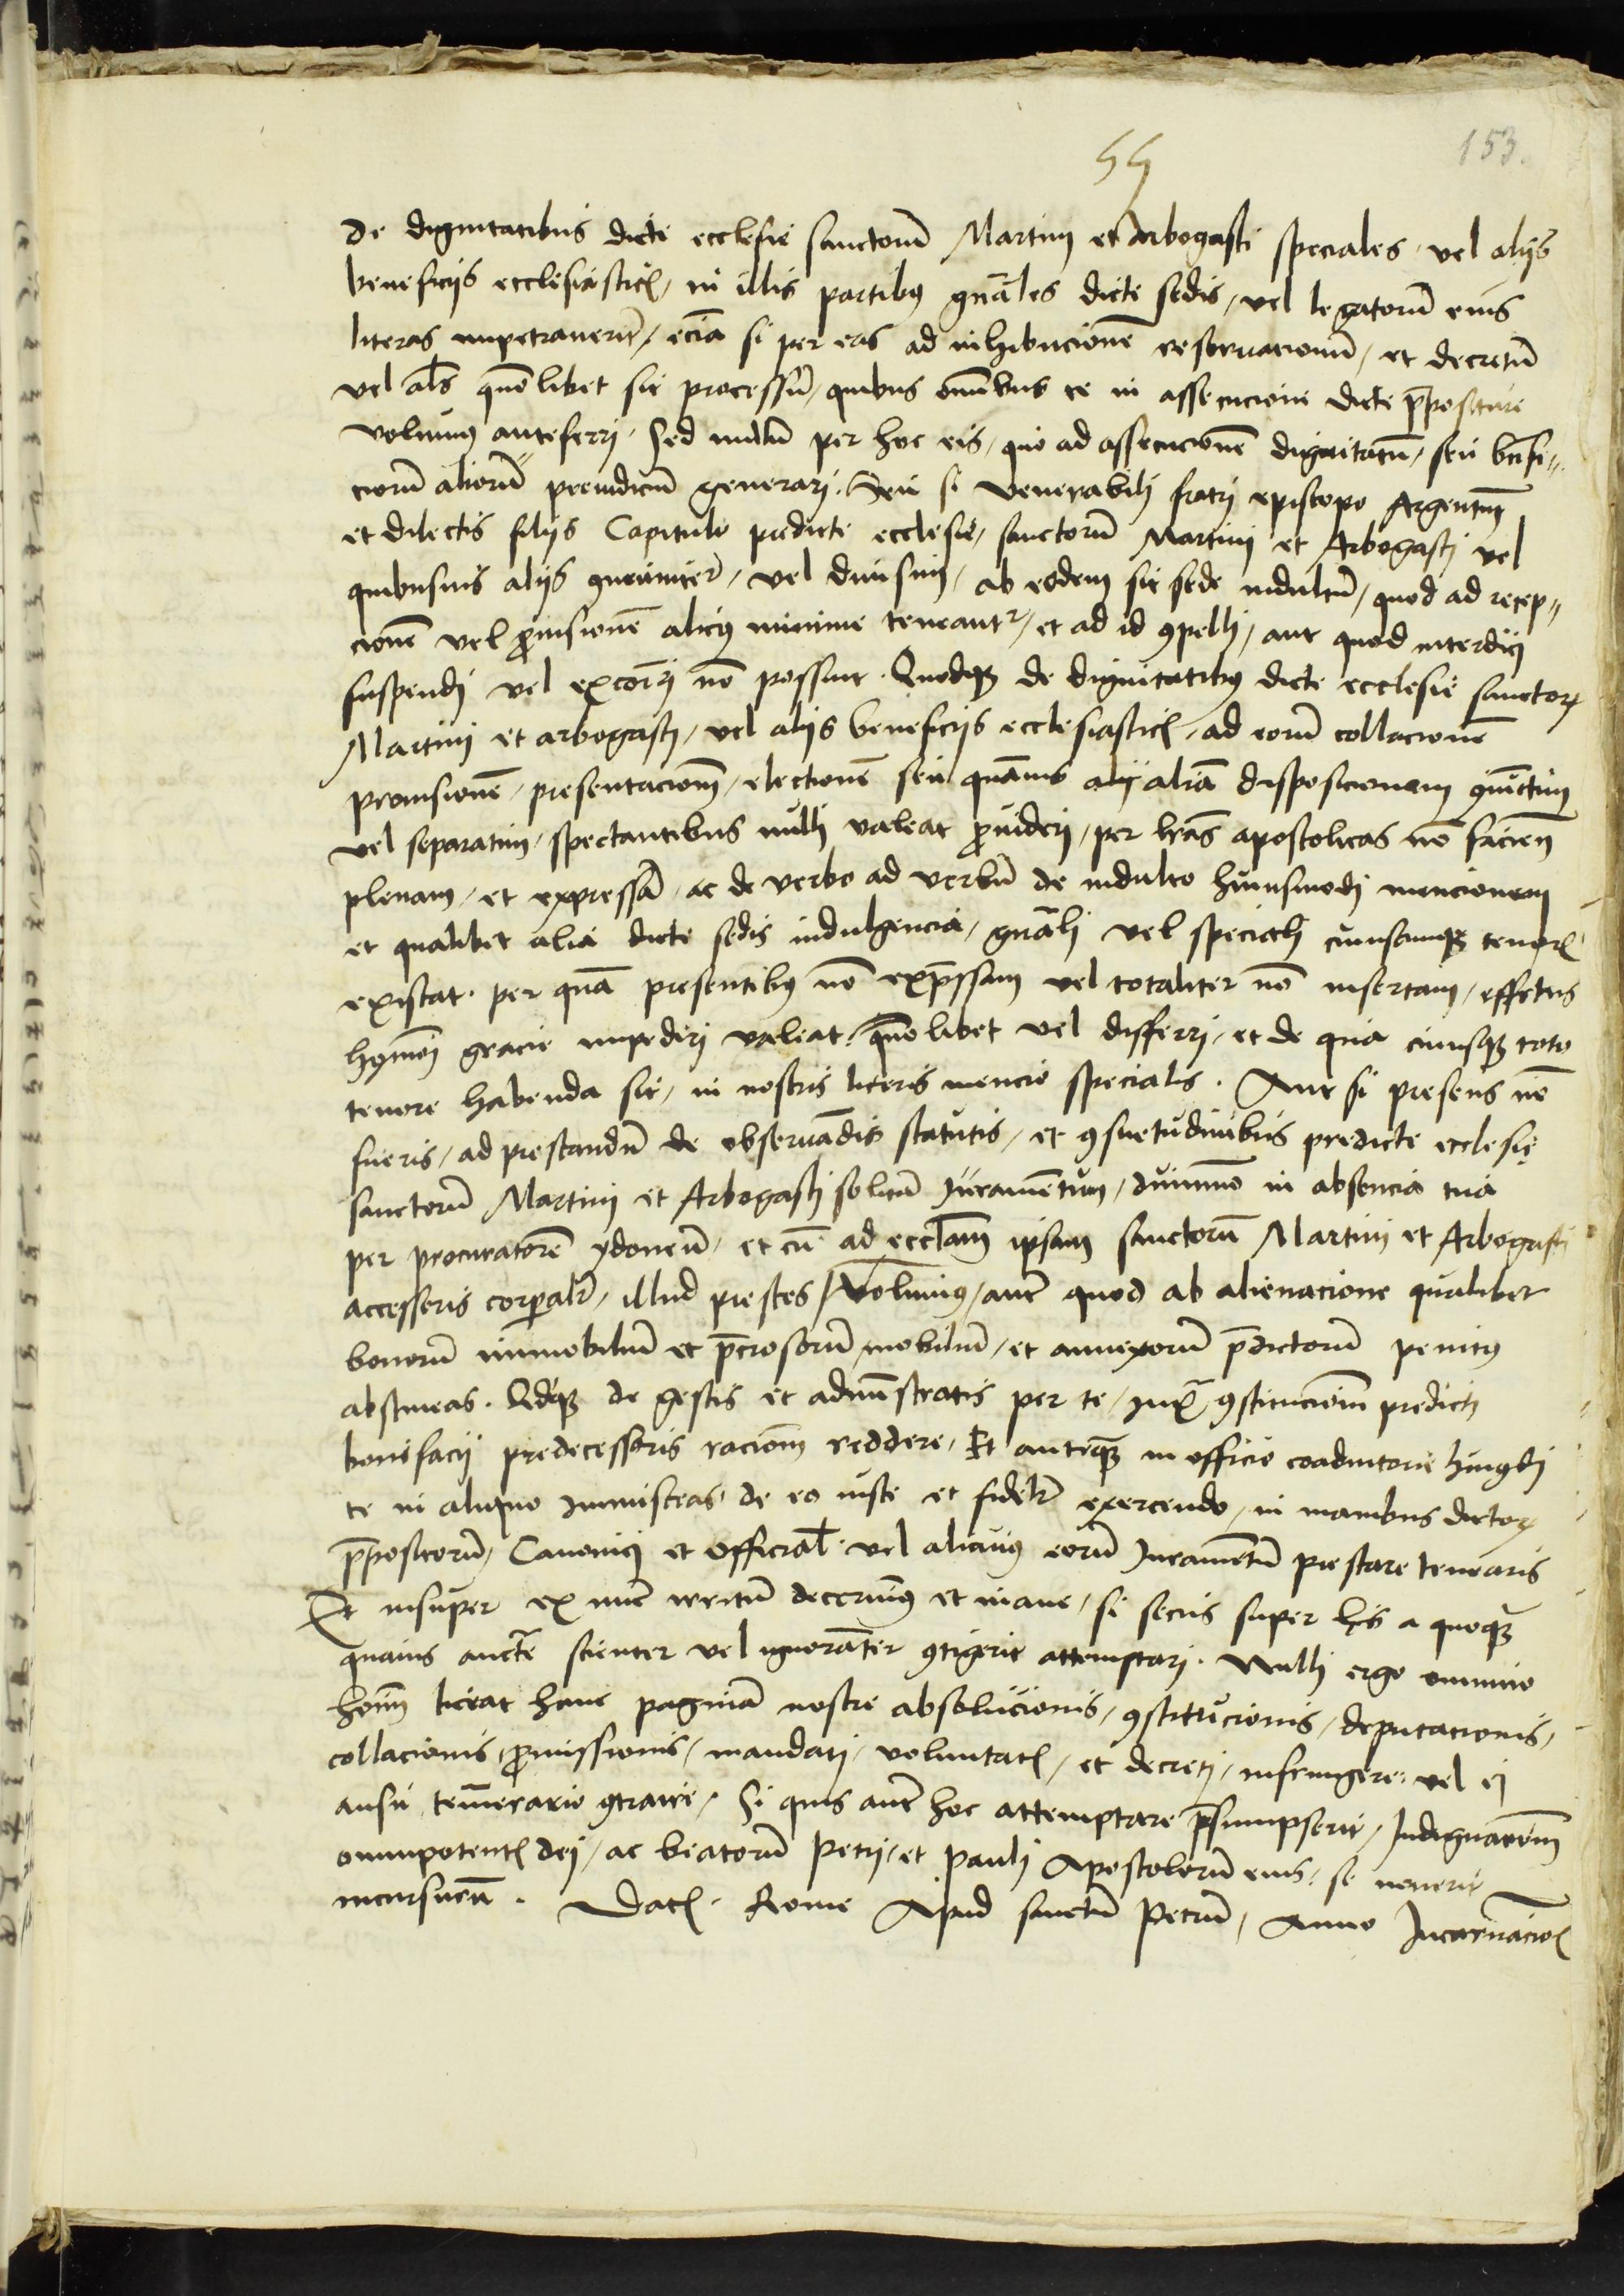 55
153.
de dignitatibus dicte ecclesie sanctorū Martini et Arbogasti speciales / vel alijs
beneficijs ecclesiasticꝭ / in illis partibꝰ gnāles dicte sedis / vel legatorū eius
literas impetrauerīt / eciā si per eas ad inhibicionē reseruacionū / et decretū
vel als quōlibet sit processū / quibus om̄ibus te in assecucione dicte p̄positure
volumus anteferri. Sed nullū per hoc eis / quo ad assecucionē dignitatū / seu bn̄fi„
ciorū aliorū preiudiciū generari. Seu si Venerabilj fratrj episcopo Argentin̄
et dilectis filijs Capitulo predicte ecclesie / sanctorū Martini et Arbogastj vel
quibusuis alijs ꝯmuniter / vel diuisim / ab eodem sit sede indultū / quod ad recep„
cionē vel ꝓuisionē alicꝰ minime teneantr / et ad id ꝯpelli / aut quod interdicj
suspendj vel excoīcarj nō possint. Quodqꝫ de dignitatibꝰ dicte ecclesie sanctoꝝ
Martini et arbogastj / vel alijs beneficijs ecclesiasticꝭ / ad eorū collacionē
prouisionē / presentacionē / electionē seu quāuis alij aliā disposicionem ꝯiūctim
vel separatim / spectantibus nulli valeat ꝓuiderj / per lrās apostolicas nō facien̄
plenam / et expressā / ac de verbo ad verbū de indulto huiusmodj mencionem
et qualibet alia dicte sedis indulgencia / gnālj vel specialj cuiuscumqꝫ tenorꝭ
existat. per quā presentibꝰ nō exp̄ssam vel totaliter nō insertam / effectus
hmōi gracie impedirj valeat quōlibet vel differri / et de qua cuiusqꝫ toto
tenore habenda sit / in nostris literis mencio specialis. Aut si presens nō
fueris / ad prestandū de obseruādis statutis / et ꝯsuetudinibus predicte ecclesie
sanctorū Martini et Arbogastj solitū Juramentum / dummodo in absencia tua
per procuratorē ydoneū / et cū ad eccl̄am ipsam sanctorū Martini et Arbogasti
accesseris corporalr / illud prestes / Volumus / aut quod ab alienacione qualibet
bonorū immobiliū et p̄ciosorū mobiliū / et annexorū p̄dictorū penitꝰ
abstineas. Qdqꝫ de gestis et admīstratis per te / iuxᵃ ꝯstitucionē predictj
bonifacij predecessoris racionē reddere. Et anteqꝫ in officio coadiutorie huiꝰdj
te in aliquo immisceas de eo iuste et fidelr exercendo / in manibus dictoꝝ
p̄positorū / Canonicj et Official. vel alicuius eorū Juramentū prestare tenearis
Et insuper ex nunc irritū decernimꝰ et inane / si secus super his a quoqꝫ
quauis auctte scienter vel ignorāter ꝯtigerit attemptarj. Nulli ergo omnino
hoīm liceat hanc paginā nostre absolucionis / ꝯstitucionis / deputacionis /
collacionis / ꝓuissionis / mandatj / voluntatꝭ / et decretj / infringere / vel ej
ausu temerario ꝯtraire. Si quis aut hoc attemptare p̄sumpserit / Indignacionē
omnipotentꝭ dej / ac beatorū Petrj et Paulj Apostolorū eius / se nouerit
incursurū. Datꝭ. Rome Apud sanctū Petrū / Anno Incarnacioꝭ